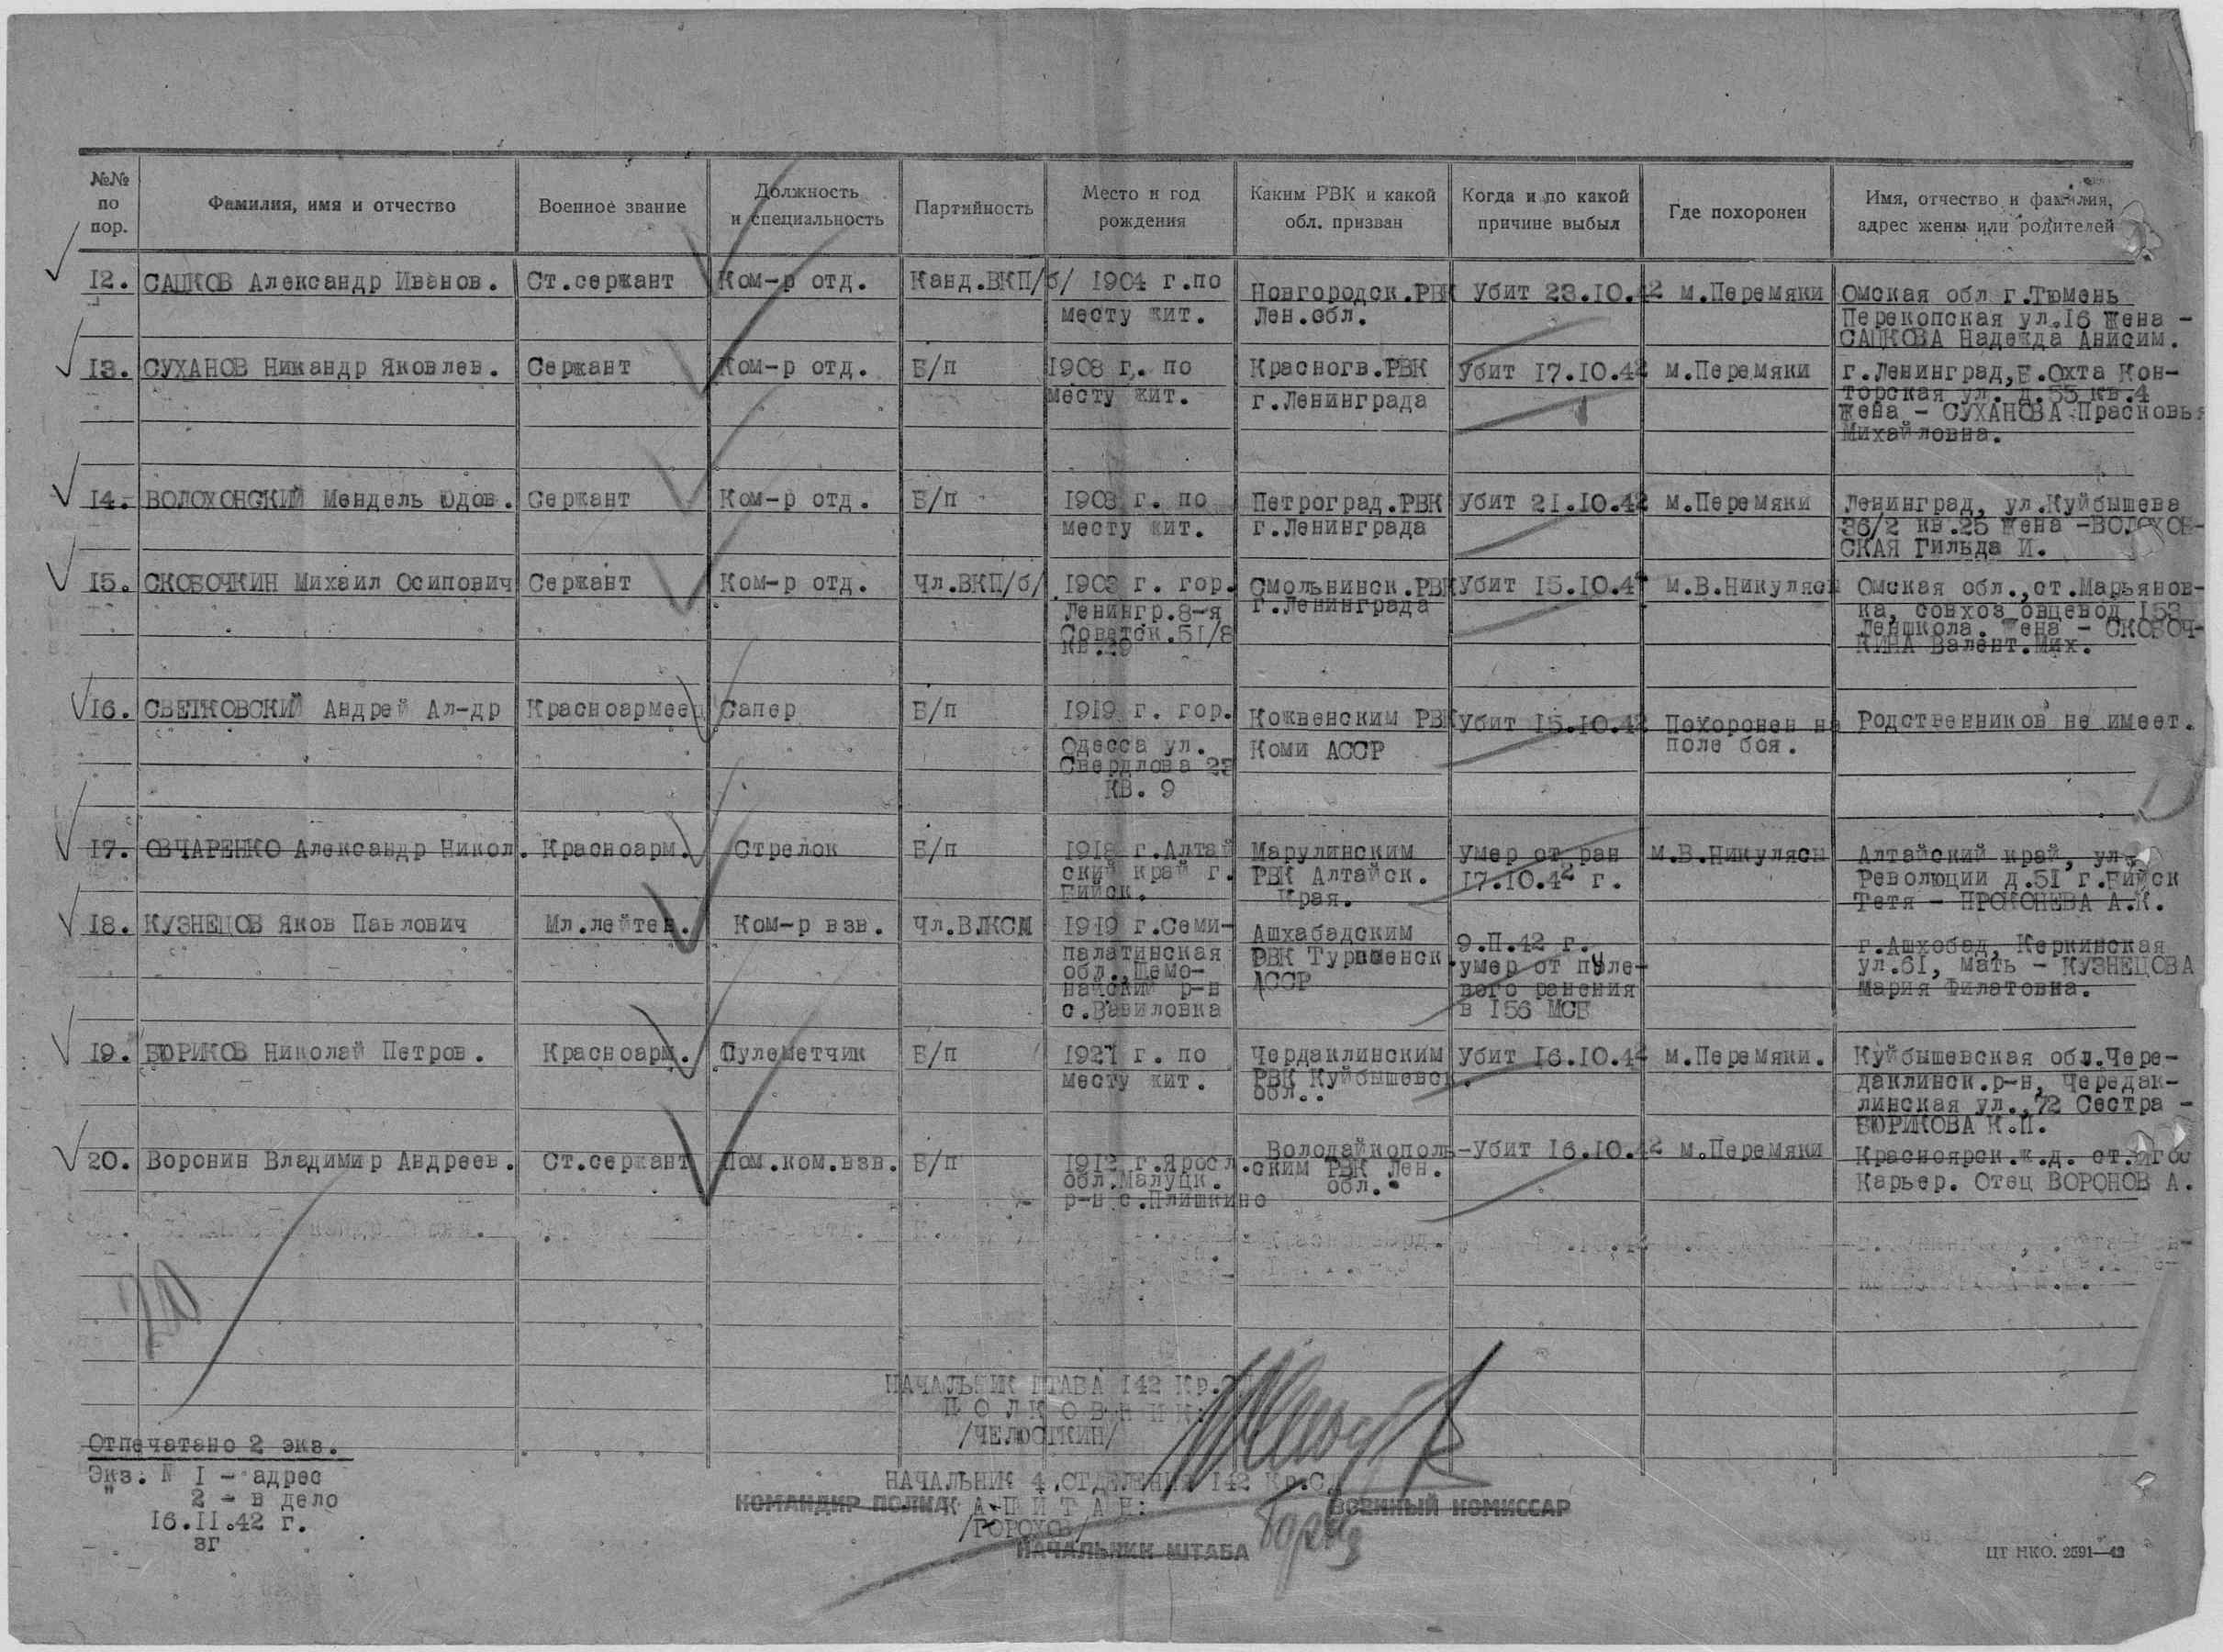 №№ по пор.
Фамилия, имя и отчество
Военное звание
Должность и специальность
Партийность
Место и год рождения
Каким РВК и какой обл. призван
Когда и по какой причине выбыл
Где похоронен
Имя, отчество и фамилия, адрес жены или родителей
12. САЦКОВ Александр Иванов. Ст.сержант Ком-р отд. Канд.ВКП/б/ 1904 г.по Новгородск.РВК Убит 23.10.42 м.Перемяки Омская обл г.Тюмень
месту жит. Лен.обл. Перекопская ул.16 Жена -
САЦКОВА Надежда Анисим.
13. СУХАНОВ Никандр Яковлев. Сержант Ком-р отд. Б/п 1908 г. по Красногв.РВК Убит 17.10.42 м.Перемяки г.Ленинград,Б.Охта Кон-
месту жит. г.Ленинграда торская ул. д.55 кв.4
Жена - СУХАНОВА Прасковья
Михайловна.
14. ВОЛОХОНСКИЙ Мендель Юдов. Сержант Ком-р отд. Б/п 1903 г. по Петроград.РВК Убит 21.10.42 м.Перемяки Ленинград, ул.Куйбышева
месту жит. г.Ленинграда 36/2 кв.25 Жена -ВОЛОХОН-
СКАЯ Гильда И.
15. СКОБОЧКИН Михаил Осипович Сержант Ком-р отд. Чл.ВКП/б/ 1903 г. гор. Смольнинск.РВК Убит 15.10.4 м.В.Никуляси Омская обл.,ст.Марьянов-
Ленингр.8-я г.Ленинграда ка, совхоз овцевод 153
Советск.51/8 Леншкола. Жена - СКОБОЧ-
кв.29 КИНА Валент.Мих.
16. СВЕТКОВСКИЙ Андрей Ал-др Красноармеец Сапер Б/п 1919 г. гор. Кожвенским РВК Убит 15.10.42 Похоронен на Родственников не имеет.
Одесса ул. Коми АССР поле боя.
Свердлова 23
КВ. 9
17. ОВЧАРЕНКО Александр Никол. Красноарм. Стрелок Б/п 1918 г.Алтай Марулинским Умер от ран м.В.Никуляси Алтайский край, ул.
ский край г. РВК Алтайск. 17.10.42 г. Революции д.51 г.Бийск
Бийск. Края. Тетя - ПРОКОНЕВА А.К.
18. КУЗНЕЦОВ Яков Павлович Мл.лейтен. Ком-р взв. Чл.ВЛКСМ 1919 г.Семи- Ашхабадским 9.II.42 г. г.Ашхобад, Керкинская
палатинская РВК Туркменск. умер от пуле- ул.61, мать - КУЗНЕЦОВА
обл.,Шемо- АССР вого ранения Мария Филатовна.
найский р-н в 156 МСБ
с.Вавиловка
19. БЮРИКОВ Николай Петров. Красноарм. Пулеметчик Б/п 1921 г. по Чердаклинским Убит 16.10.42 м.Перемяки. Куйбышевская обл.Чере-
месту жит. РВК Куйбышевск. даклинск.р-н, Чередак-
обл.. линская ул.,72 Сестра -
БЮРИКОВА К.П.
20. Воронин Владимир Андреев. Ст.сержант Пом.ком.взв. Б/п 1912 г.Яросл. Володайкополь- Убит 16.10.42 м.Перемяки Красноярск.ж.д. ст.
обл.Малуцк. ским РВК Лен. Карьер. Отец ВОРОНОВ А.
р-н с.Плишкино обл.
20
НАЧАЛЬНИК ШТАБА 142 Кр.СД
ПОЛКОВНИК:
/ЧЕЛЮСТКИН/
Отпечатано 2 экз.
Экз. N 1 - адрес
" 2 - в дело
16.II.42 г.
зг
НАЧАЛЬНИК 4 ОТДЕЛЕНИЯ 142 Кр.СД
КОМАНДИР ПОЛКА КАПИТАН: ВОЕННЫЙ КОМИССАР
/ГОРОХОВ/
НАЧАЛЬНИК ШТАБА
ЦТ НКО. 2591—42